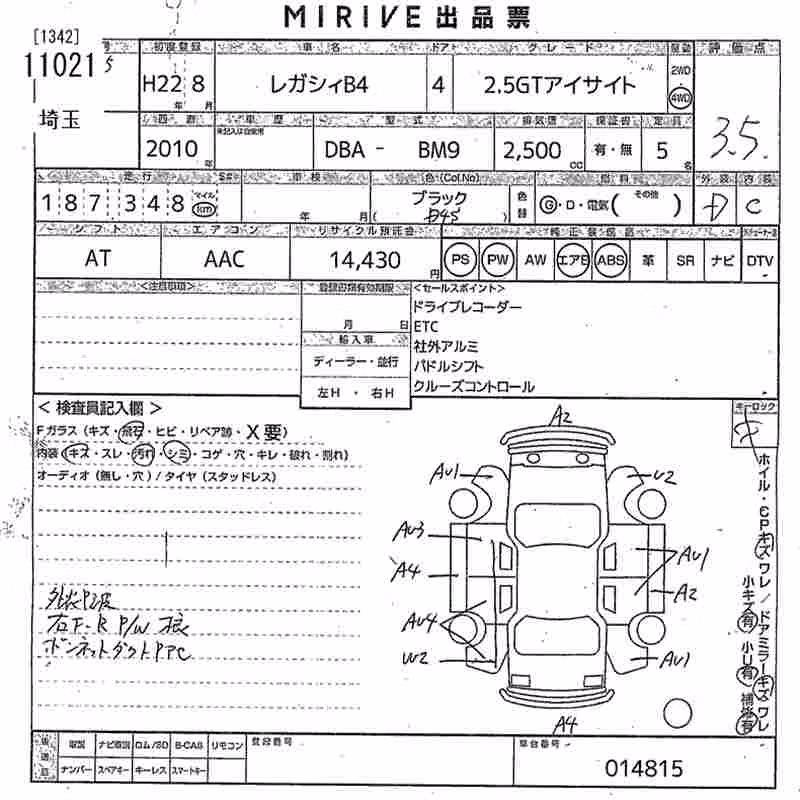 MIRIVE 出品票
[1342]
11021
埼玉
初度登録 車名 ドア グレード 駆動 評価点
H22 8 レガシィB4 4 2.5GTアイサイト 2WD 4WD 3.5
年 月
車歴 型式 排気量 保証書 定員
未記入は自家用
2010 年 DBA - BM9 2,500 CC 有・無 5 名
走行 車検 色(Col.No) 燃料 外装 内装
187348 マイル km 年 月 ブラック ( D4S ) 色替 G・D・電気( その他 ) D C
シフト エアコン リサイクル預託金 純正装備品
AT AAC 14,430 円 PS PW AW エアB ABS 革 SR ナビ DTV
<注意事項> 登録書類有効期限 <セールスポイント>
月 日
輸入車
ディーラー・並行
左H・右H
ドライブレコーダー
ETC
社外アルミ
パドルシフト
クルーズコントロール
<検査員記入欄>
Fガラス(キズ・飛石・ヒビ・リペア跡・X要)
内装(キズ・スレ・汚れ・シミ・コゲ・穴・キレ・破れ・割れ)
オーディオ(無し・穴)/タイヤ(スタッドレス)
右F・R P/W
キーロック
A2
AU1 U2
AU3 AU1
A4 A2
AU4
W2 AU1
A4
ホイル・CPキズワレ/ドアミラーキズワレ
小キズ有 小U有 補修有
取説 ナビ取説 ロム/SD B-CAS リモコン 登録番号 車台番号
ナンバー スペアキー キーレス スマートキー 014815